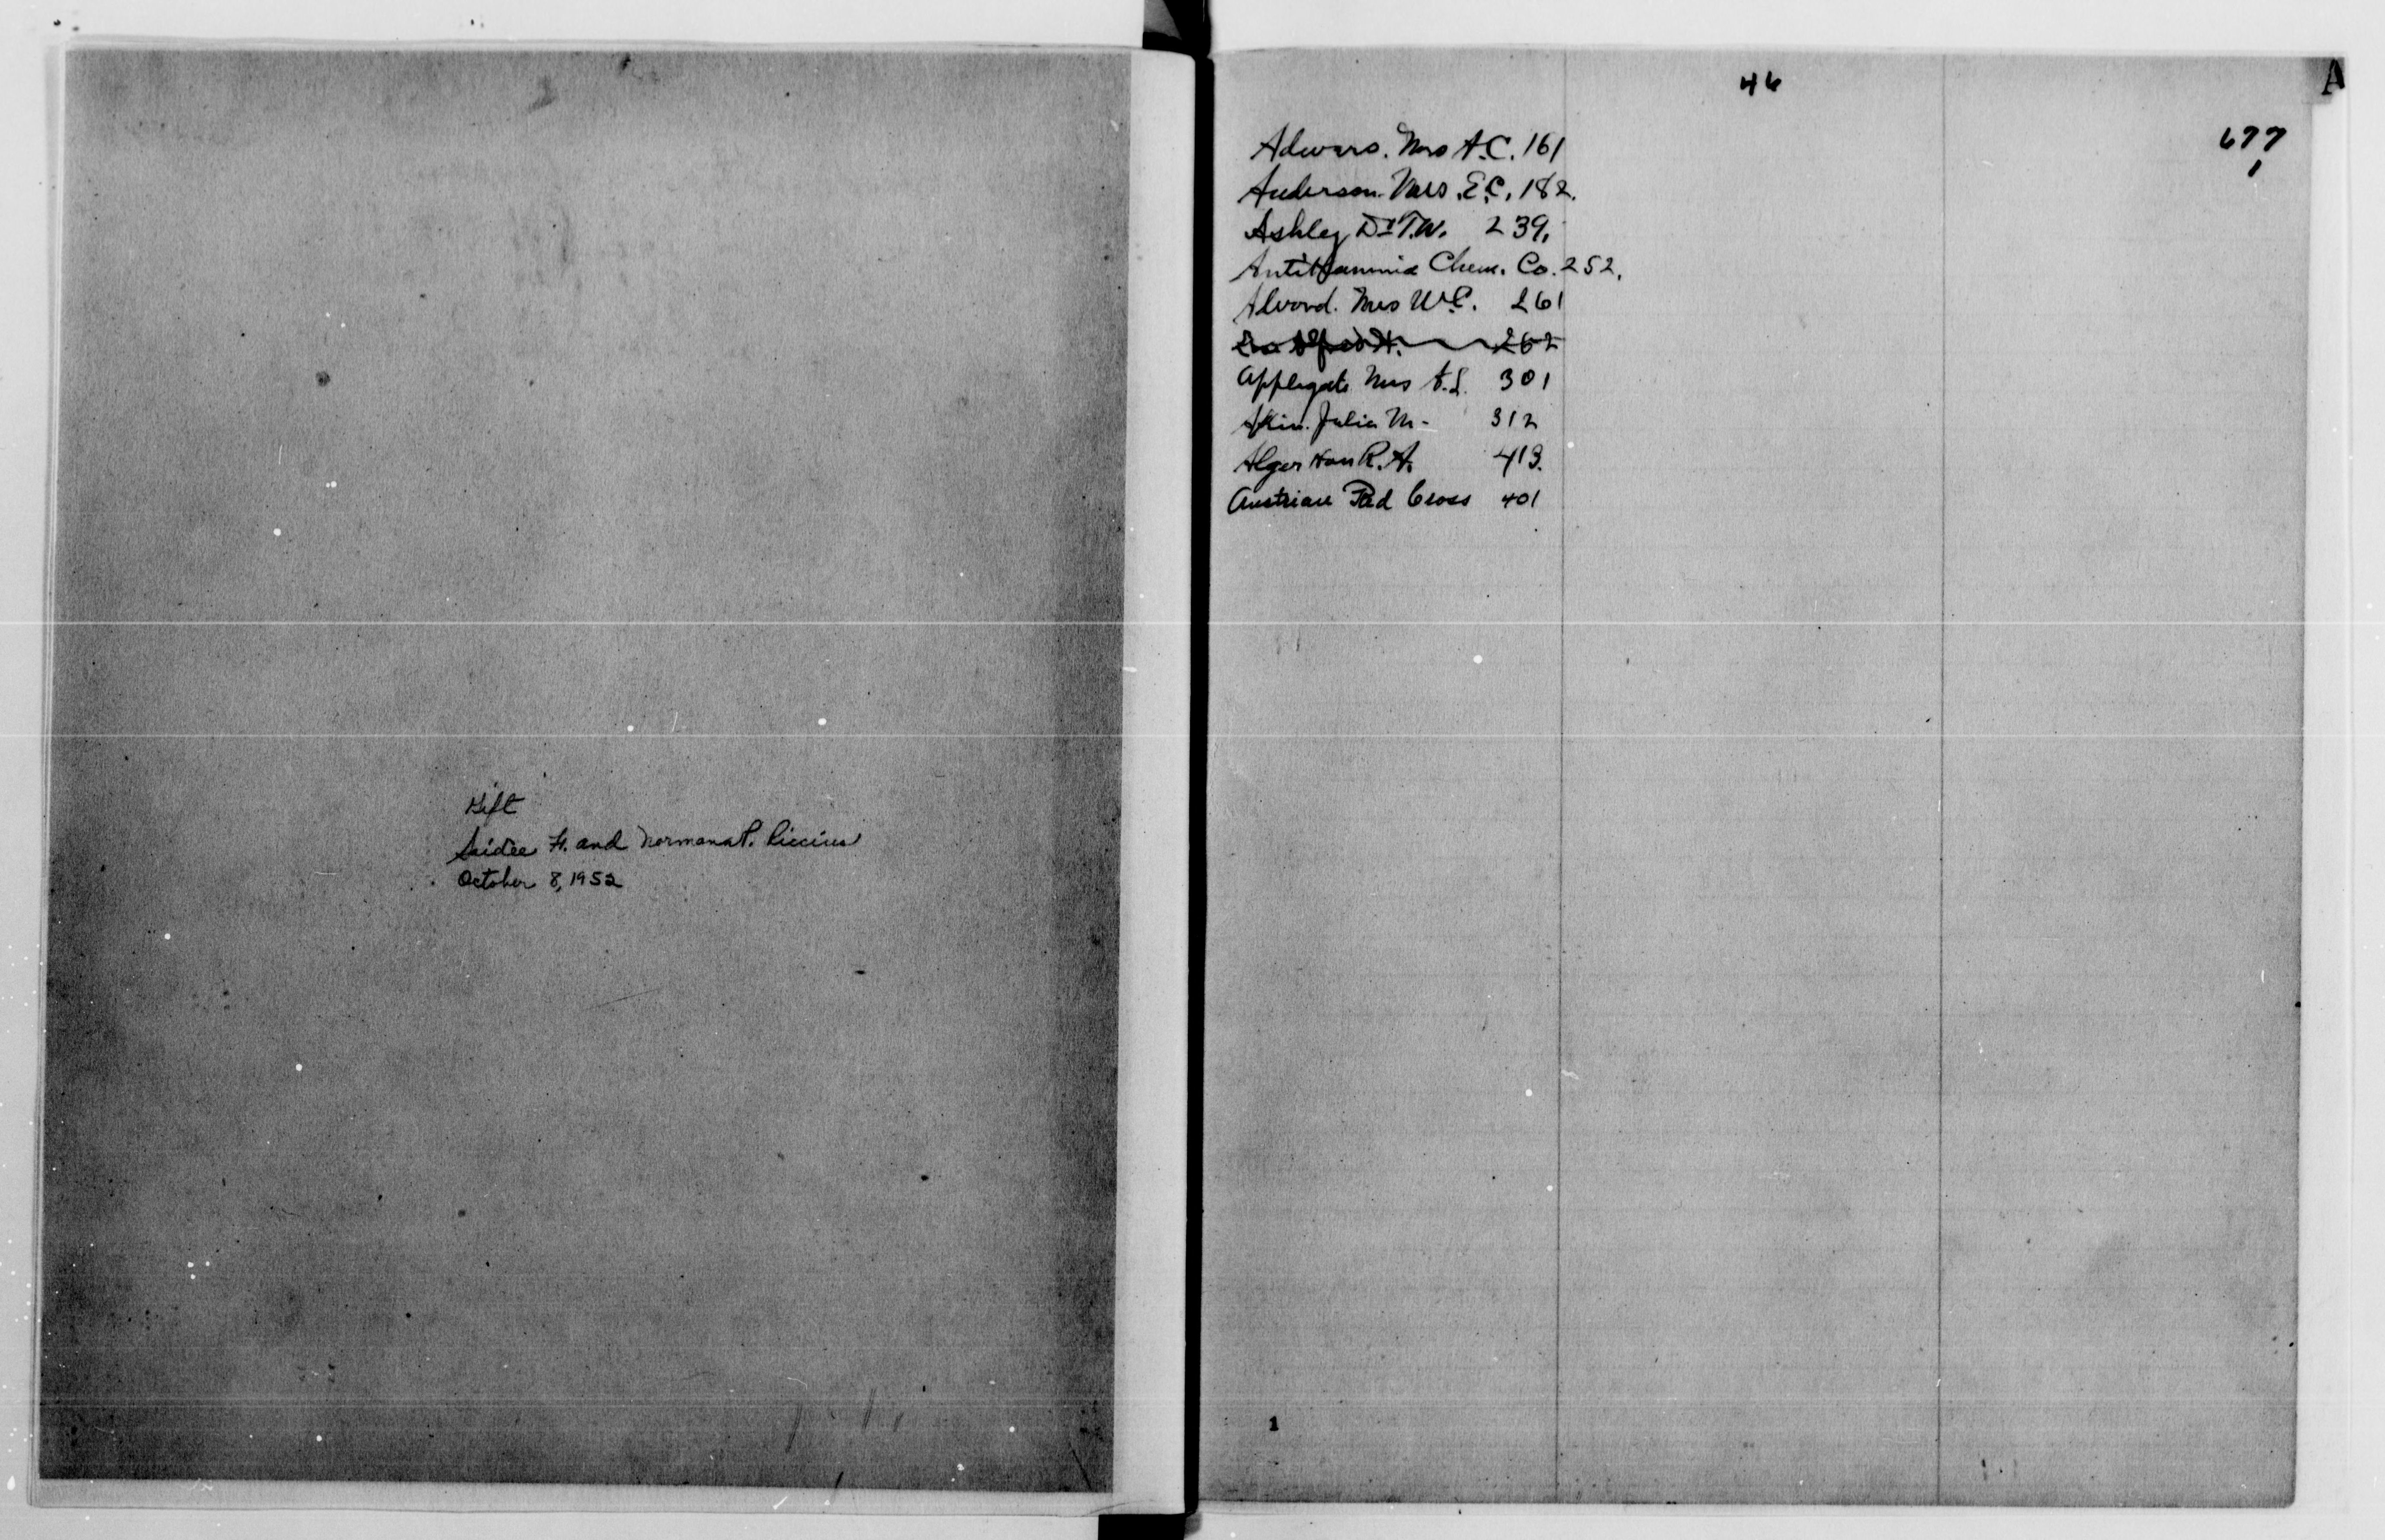 Gift
Saidee F. and Hermann P. Riccius
October 8, 1952
46
A
677
1
Adwars. Mrs A.C. 161
Anderson. Mrs. E.C. 182.
Ashley Dr T.W. 239.
Antikamnia Chem. Co. 252.
Alvord. Mrs Wm C. 261
262
Applegate Mrs A.L. 301
Akin. Julia M- 312
Alger Hon R.A. 413.
Austrian Red Cross 401
1